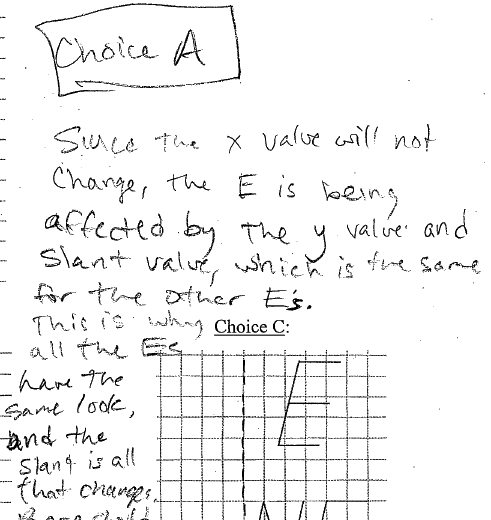 Choice A
Since the x value will not
Change, the E is being
affected by the y value and
Slant value, which is the same
for the other E's.
This is why Choice C:
all the Es
have the
same look,
and the
Slant is all
that changes.